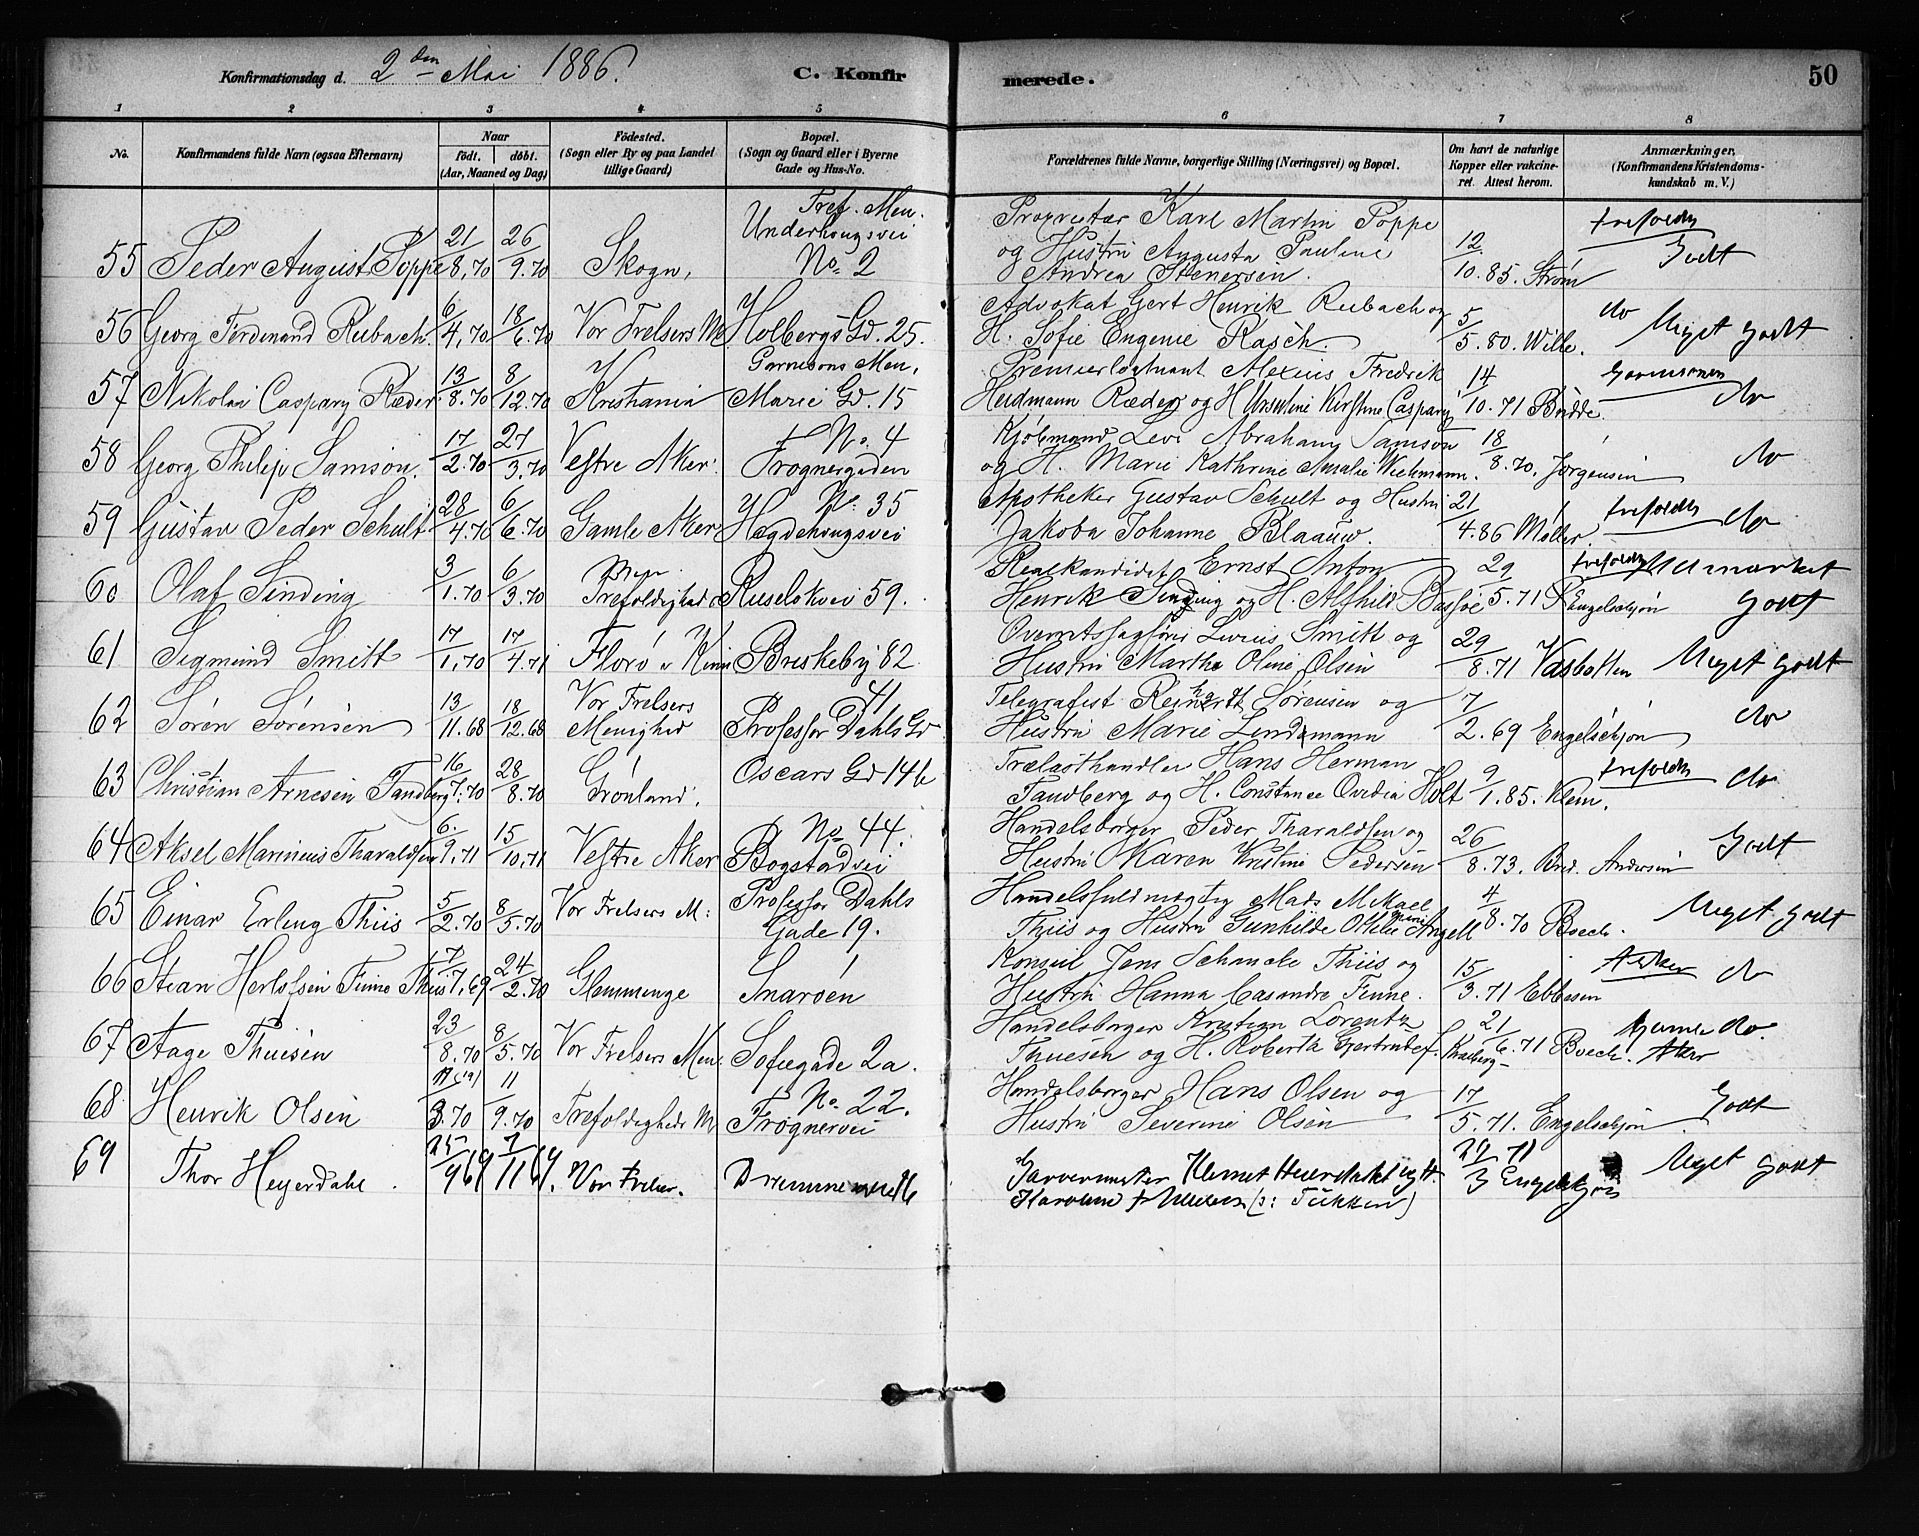 Konfirmationsdag d. 2den Mai 1886. C. Konfirmerede. 50
1 2 3 4 5 6 7 8
No. Konfirmandens fulde Navn (ogsaa Efternavn) Naar født. døbt. (Aar, Maaned og Dag) Fødested. (Sogn eller By og paa Landet tillige Gaard) Bopæl. (Sogn og Gaard eller i Byerne Gade og Hus-No. Forældrenes fulde Navne, borgerlige Stilling (Næringsvei) og Bopæl. Om havt de naturlige Kopper eller vakcineret. Attest herom. Anmærkninger. (Konfirmandens Kristendomskundskab m. V.)
Tref. Men.
Underhougsvei Proprietær Karl Martin Poppe trefoldh
55 Peder August Poppe 21/8,70 26/9.70 Skogn, No. 2 og Hustru Augusta Pauline Andrea Stenersen. 12/10.85. Strøm Godt
56 Georg Ferdinand Rubach. 6/4,70 18/6.70 Vor Frelsers M Holbergs Gd. 25. Advokat Gert Henrik Rubach og
H. Sofie Eugenie Rasch 5/5.80. Wille. do Meget godt
Garnisons Men. Garnisonen
57 Nikolai Caspary Ræder 13/8.70 8/12.70 Kristiania Marie Gd. 15 Premierløitnant Alexius Fredrik
Heidmann Ræder og H. Ursuline Kirstine Caspary 14/10.71 Budde. do
58 Georg Philip Samson. 17/2.70 27/3.70 Vestre Aker. No. 4 Frognergaden Kjøbmand Levi Abraham Samson
og H. Marie Kathrine Amalie Wichmann. 18/8.70, Jørgensen do
59 Gustav Peder Schult 28/4.70 6/6.70 Gamle Aker No. 35 Hægdehougsvei Apotheker Gustav Schult og Hustru
Jakoba Johanne Blaauw. 21/4.86 Møller. trefoldh do
60 Olaf Sinding 3/1.70 6/3.70 Trefoldighed Ruseløkvei 59. Realkandidat Ernst Anton
Henrik Sinding og H. Alfhild Bassøe 29/5.71 Engelschjøn trefoldh Udmærket godt
61 Sigmund Smitt 17/1,70 17/4.71 Florø v Kinn Briskeby 82 Overretssagfører Smitt og
Hustru Martha Oline Olsen 29/8.71 Vasbotten Meget godt
62 Søren Sørensen 13/11.68 18/12.68 Vor Frelsers Menighed 41 Professor Dahls Gd Telegrafist Reinhardt Sørensen og
Hustru Marie Lindemann 7/2.69 Engelschjøn do
63 Christian Arnesen Tandberg 16/7.70 28/8.70 Grønland. Oscars Gd 14b Trælasthandler Hans Herman
Tandberg og H. Constance Ovidia Holt 9/1.85. Klem. trefoldh do
64 Aksel Marinius Tharaldsen 6/9,71 15/10.71 Vestre Aker No 44. Bogstadvei Handelsborger Peder Tharaldsen og
Hustru Karen Kristine Pedersen 26/8.73. Andersen Godt
65 Einar Erling Thiis 5/2.70 8/5.70 Vor Frelsers M: Professor Dahls Gade 19. Handelsfuldmægtig Mads Mikael
Thiis og Hustru Gunhilde Ottilie Angell 4/8.70 Boeck. Meget godt
66 Stian Herlofsen Finne Thiis 7/7,69 24/2.70 Glemminge Snarøen Konsul Jens Schancke Thiis og
Hustru Hanna Casandra Finne. 15/3.71 Ebbesen Asker do
67 Aage Thuesen 23/8.70 8/5.70 Vor Frelsers Men. Sofiegade 2a. Handelsborger Kristian Lorentz
Thuesen og H. Roberta Gjertrud f. Kraberg 21/6.71 Boeck. Gamle Aker do.
68 Henrik Olsen 17(19)/3.70 11/9.70 Trefoldigheds M No. 22. Frognervei Handelsborger Hans Olsen og
Hustru Severine Olsen 17/5.71. Engelschjøn. Godt
69 Thor Heyerdahl. 25/9 69 7/11 69. Vor Frelser. Garvermester Heyerdahl og H.
29/3 71 Engelschjøn Meget godt